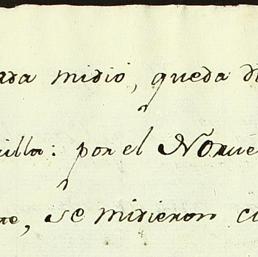 midió, queda
illa: por el Norue
se midieron